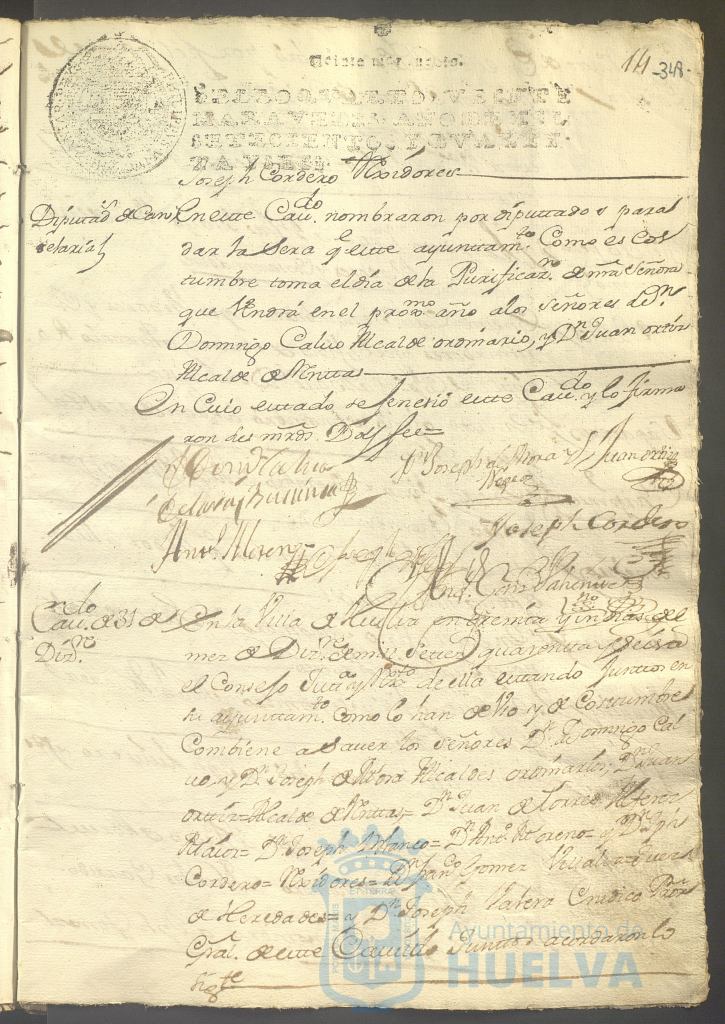 Veinte maravedis.
14 -348-
SELLO QVARTO, VEINTE
MARAVEDIS, AÑO DE MIL
SETECIENTOS, Y QVAREN-
TA Y SEIS.
Joseph Cordero Rexidores
Diputads. de Can
delarias
En este Cavdo. nombraron por diputtados para
dar la Sera qe este ayunttamto. Como es Cos
tumbre toma el dia de la Purificazn. de nra Señora
que Vendrá en el proxmo año a los Señores Dn.
Domingo Calvo Alcalde ordinario, y Dn Juan ortiz
Alcalde de Milttas
En Cuio esttado, se fenesió este Cavdo. y lo firma
ron dus mrds. Doy fee=
Dn Joseph de Mora y
Negro
Juan ortiz
Joseph Cordero
Anto. Moreno
Cavdo. de 31 de
Dizre.
En la Villa de Huelva en treinta y un dias del
mes de Dizre. de mil Setetos. quarenta y seis a
el Consejo Justa. y Rexto. de ella esttando Juntos en
su ayunttamto. como lo han de Vso y de Costumbre
Combiene a saver los señores Dn. Domingo Cal
vo, y Dn. Joseph de Mora Alcaldes ordinarios, Dn Juan
ortiz= Alcalde de Milttas= Dn. Juan de Torres Alferez
Maior= Dn. Joseph Blanco= Dn Anto. Moreno= y Dn. Jph
Cordero= Rexidores= Dn Franco. Gomez Villalva= Juez
de Heredades= y Dn. Joseph Valera Sindico Pror
Gral. de este Cavildo Juntos acordaron lo
sigte
Ayuntamiento de
HUELVA